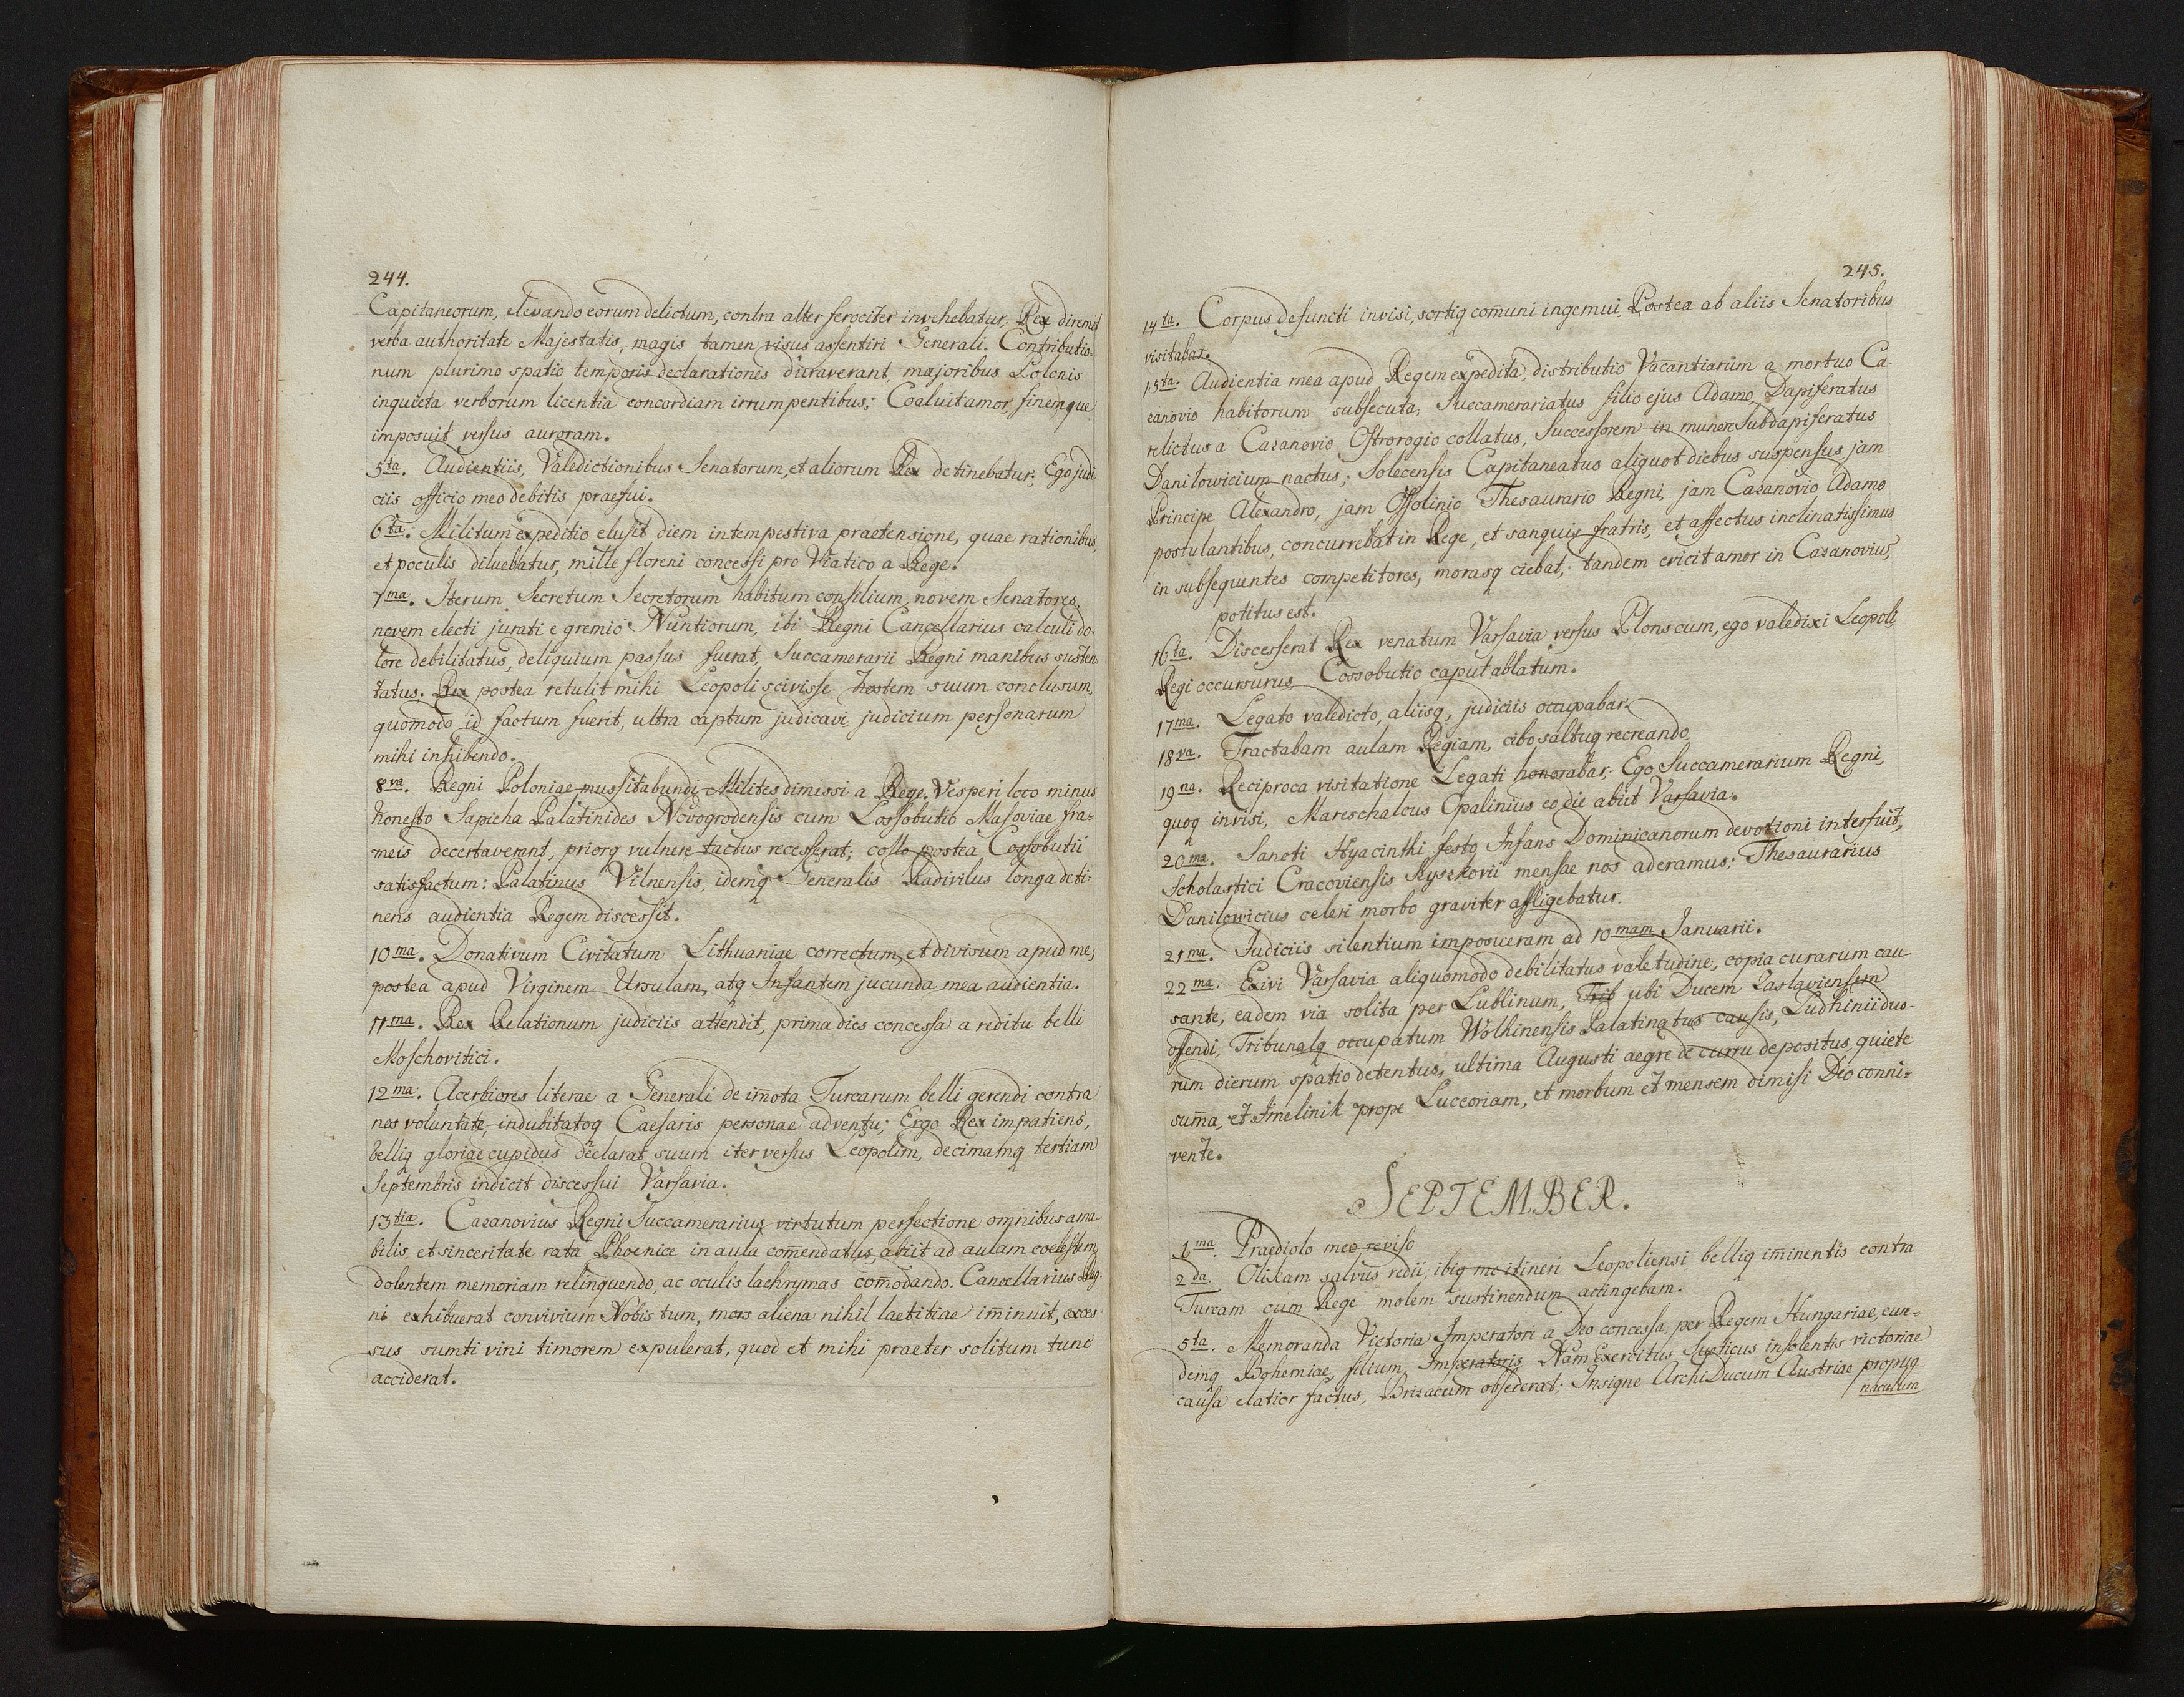 244.
Capitaneorum, elevando eorum delictum, contra alter ferociter invehebatur. Rex diremit
verba authoritate Majestatis, magis tamen visus assentiri Generali. Contributio-
num plurimo spatio temporis declarationes duraverant, majoribus Polonis
inquieta verborum licentia concordiam irrumpentibus; Coaluit amor, finemque
imposuit versus auroram.
5ta. Audientiis, Valedictionibus Senatorum, et aliorum Rex detinebatur; Ego judi
ciis officio meo debitis praefui.
6ta. Militum expeditio elusit diem intempestiva praetensione, quae rationibus,
et poculis diluebatur, mille floreni concessi pro Viatico a Rege.
7ma. Iterum Secretum Secretorum habitum consilium, novem Senatores,
novem electi jurati e gremio Nuntiorum, ibi Regni Cancellarius calculi do-
lore debilitatus, deliquium passus fuerat, Succamerarii Regni manibus susten
tatus. Rex postea retulit mihi Leopoli scivisse hostem suum conclusum,
quomodo id factum fuerit, ultra captum judicavi judicium personarum
mihi inhibendo.
8va. Regni Poloniae mussitabundi Milites dimissi a Rege. Vesperi loco minus
honesto Sapieha Palatinides Novogrodensis cum Cossobutio Masoviae fra-
meis decertaverant, priorq vulnere tactus recesserat, collo postea Cossobutii
satisfactum: Palatinus Vilnensis, idemq Generalis Radivilus longa deti-
nens audientia Regem discessit.
10ma. Donativum Civitatum Lithuaniae correctum, et divisum apud me;
postea apud Virginem Ursulam, atq Infantem jucunda mea audientia.
11ma. Rex Relationum judiciis attendit, prima dies concessa a reditu belli
Moschovitici.
12ma. Acerbiores literae a Generali de im̄ota Turcarum belli gerendi contra
nos voluntate, indubitatoq Caesaris personae adventu; Ergo Rex impatiens,
belliq gloriae cupidus declarat suum iter versus Leopolim, decimamq tertiam
Septembris indicit discessui Varsavia.
13tia. Cazanovius Regni Succamerarius virtutum perfectione omnibus ama
bilis, et sinceritate rata Phoenice in aula com̄endatus, abiit ad aulam coelestem,
dolentem memoriam relinquendo, ac oculis lachrymas com̄odando. Cancellarius Reg-
ni exhibuerat convivium Nobis tum, mors aliena nihil laetitiae im̄inuit, exces
sus sumti vini timorem expulerat, quod et mihi praeter solitum tunc
acciderat.
245.
14ta. Corpus defuncti invisi, sortiq com̄uni ingemui. Postea ab aliis Senatoribus
visitabar.
15ta. Audientia mea apud Regem expedita, distributio Vacantiarum a mortuo Ca
zanovio habitorum subsecuta, Succamerariatus filio ejus Adamo, Dapiferatus
relictus a Cazanovio Ostrorogio collatus, Successorem in munere Subdapiferatus
Daniłowicium nactus; Solecensis Capitaneatus aliquot diebus suspensus jam
Principe Alexandro, jam Ossolinio Thesaurario Regni, jam Cazanovio Adamo
postulantibus, concurrebat in Rege, et sanguis fratris, et affectus inclinatissimus
in subsequentes competitores, morasq ciebat; tandem evicit amor in Cazanovius
potitus est.
16ta. Discesserat Rex venatum Varsavia versus Plonscum, ego valedixi Leopoli
Regi occursurus. Cossobutio caput ablatum.
17ma. Legato valedicto, aliisq, judiciis occupabar.
18va. Tractabam aulam Regiam, cibo saltuq recreando.
19na. Reciproca visitatione Legati honorabar. Ego Succamerarium Regni,
quoq invisi, Mareschalcus Opalinius eo die abiit Varsavia.
20ma. Sancti Hyacinthi festo Infans Dominicanorum devotioni interfuit,
Scholastici Cracoviensis Ryszkovii mensae nos aderamus; Thesaurarius
Danilowicius celeri morbo graviter affligebatur.
21ma. Judiciis silentium imposueram ad 10mam Januarii.
22ma. Exivi Varsavia aliquomodo debilitatus valetudine, copia curarum cau
sante, eadem via solita per Lublinum, Trib ubi Ducem Zaslaviensem
offendi, Tribunalq occupatum Wolhinensis Palatinatus causis, Ludhinii duo-
rum dierum spatio detentus, ultima Augusti aegre de curru depositus, quiete
sum̄a, et Imelinik prope Luceoriam, et morbum et mensem dimisi Deo conni-
vente.
SEPTEMBER.
1ma. Praediolo meo reviso
2da. Olikam salvus redii, ibiq me itineri Leopoliensi, belliq im̄inentis contra
Turcam cum Rege molem sustinendum accingebam.
5ta. Memoranda Victoria Imperatori a Deo concessa per Regem Hungariae, eun-
demq Bohemiae, filium Imperatoris. Nam Exercitus Sveticus insolentis victoriae
causa elatior factus, Brizacum obsederat; Insigne ArchiDucum Austriae propug
naculum